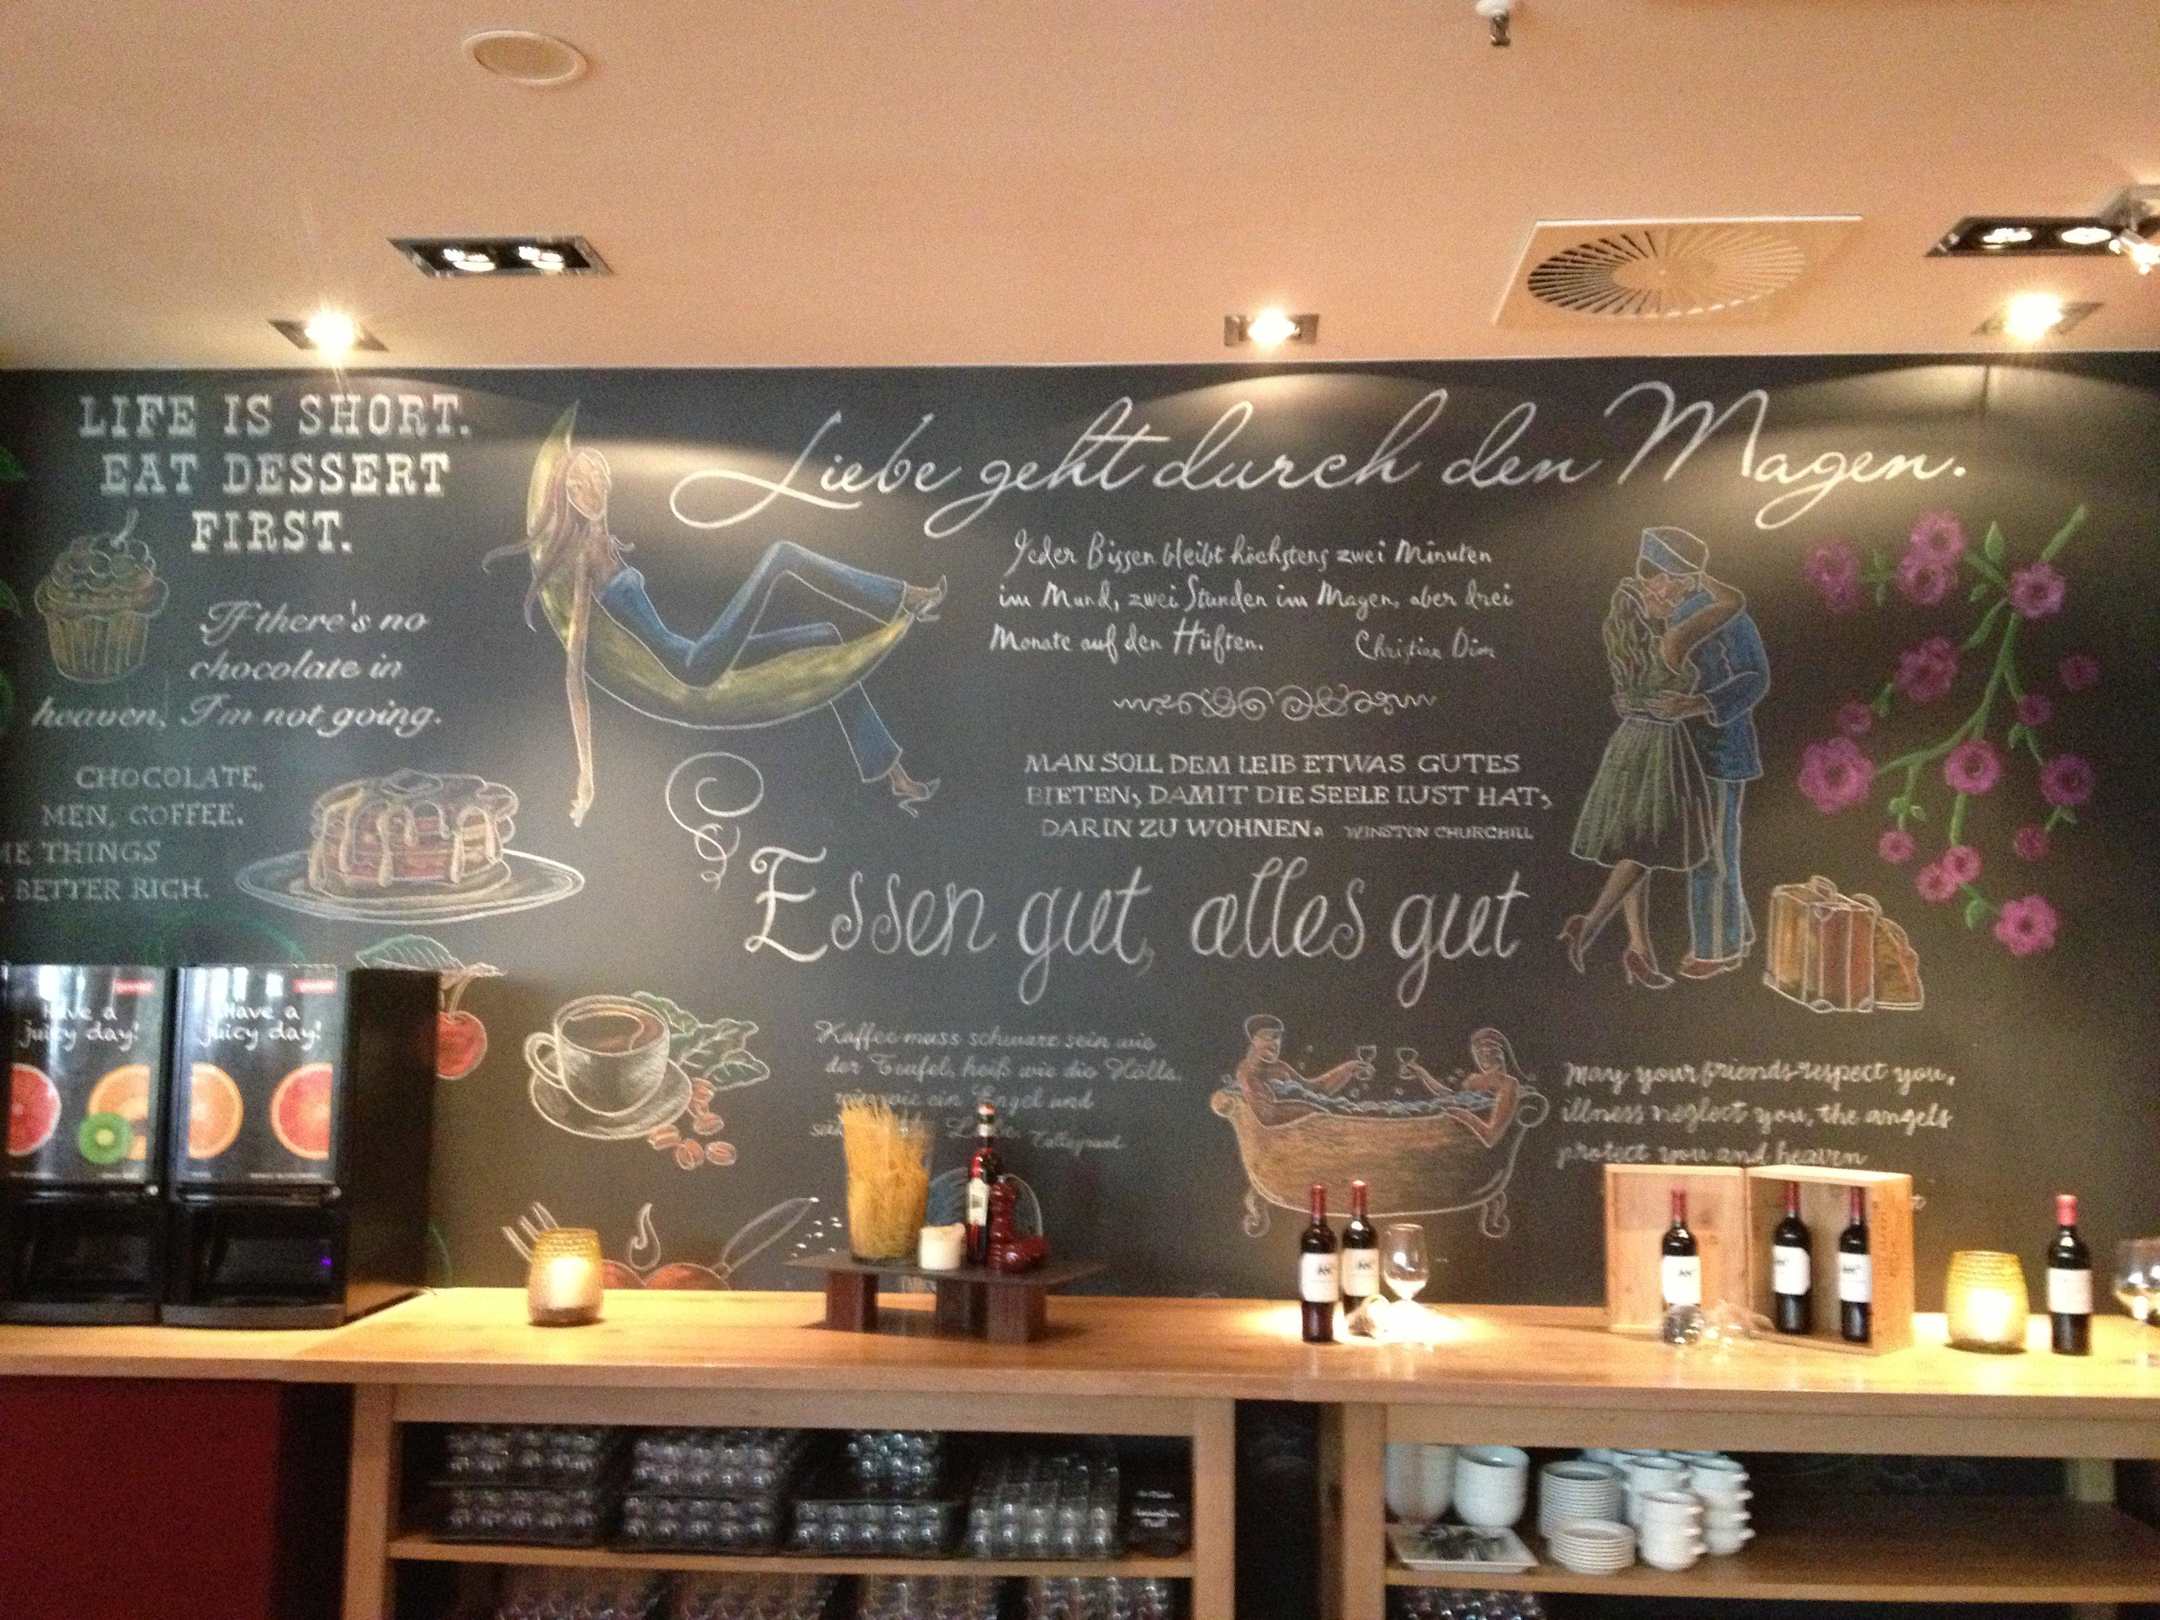 LIFE IS SHORT.
EAT DESSERT
FIRST.
If there's no
chocolate in
heaven, I'm not going.
CHOCOLATE,
MEN, COFFEE.
THINGS
BETTER RICH.
Liebe geht durch den Magen.
Jeder Bissen bleibt höchstens zwei Minuten
im Mund, zwei Stunden im Magen, aber drei
Monate auf den Hüften. Christian Dior
MAN SOLL DEM LEIB ETWAS GUTES
BIETEN, DAMIT DIE SEELE LUST HAT,
DARIN ZU WOHNEN. WINSTON CHURCHILL
Essen gut, alles gut
Kaffee muss schwarz sein wie
der Teufel, heiß wie die Hölle,
ein Engel und
Talleyrand
May your friends respect you,
illness neglect you, the angels
protect you and heaven
Have a
juicy day!
Have a
juicy day!